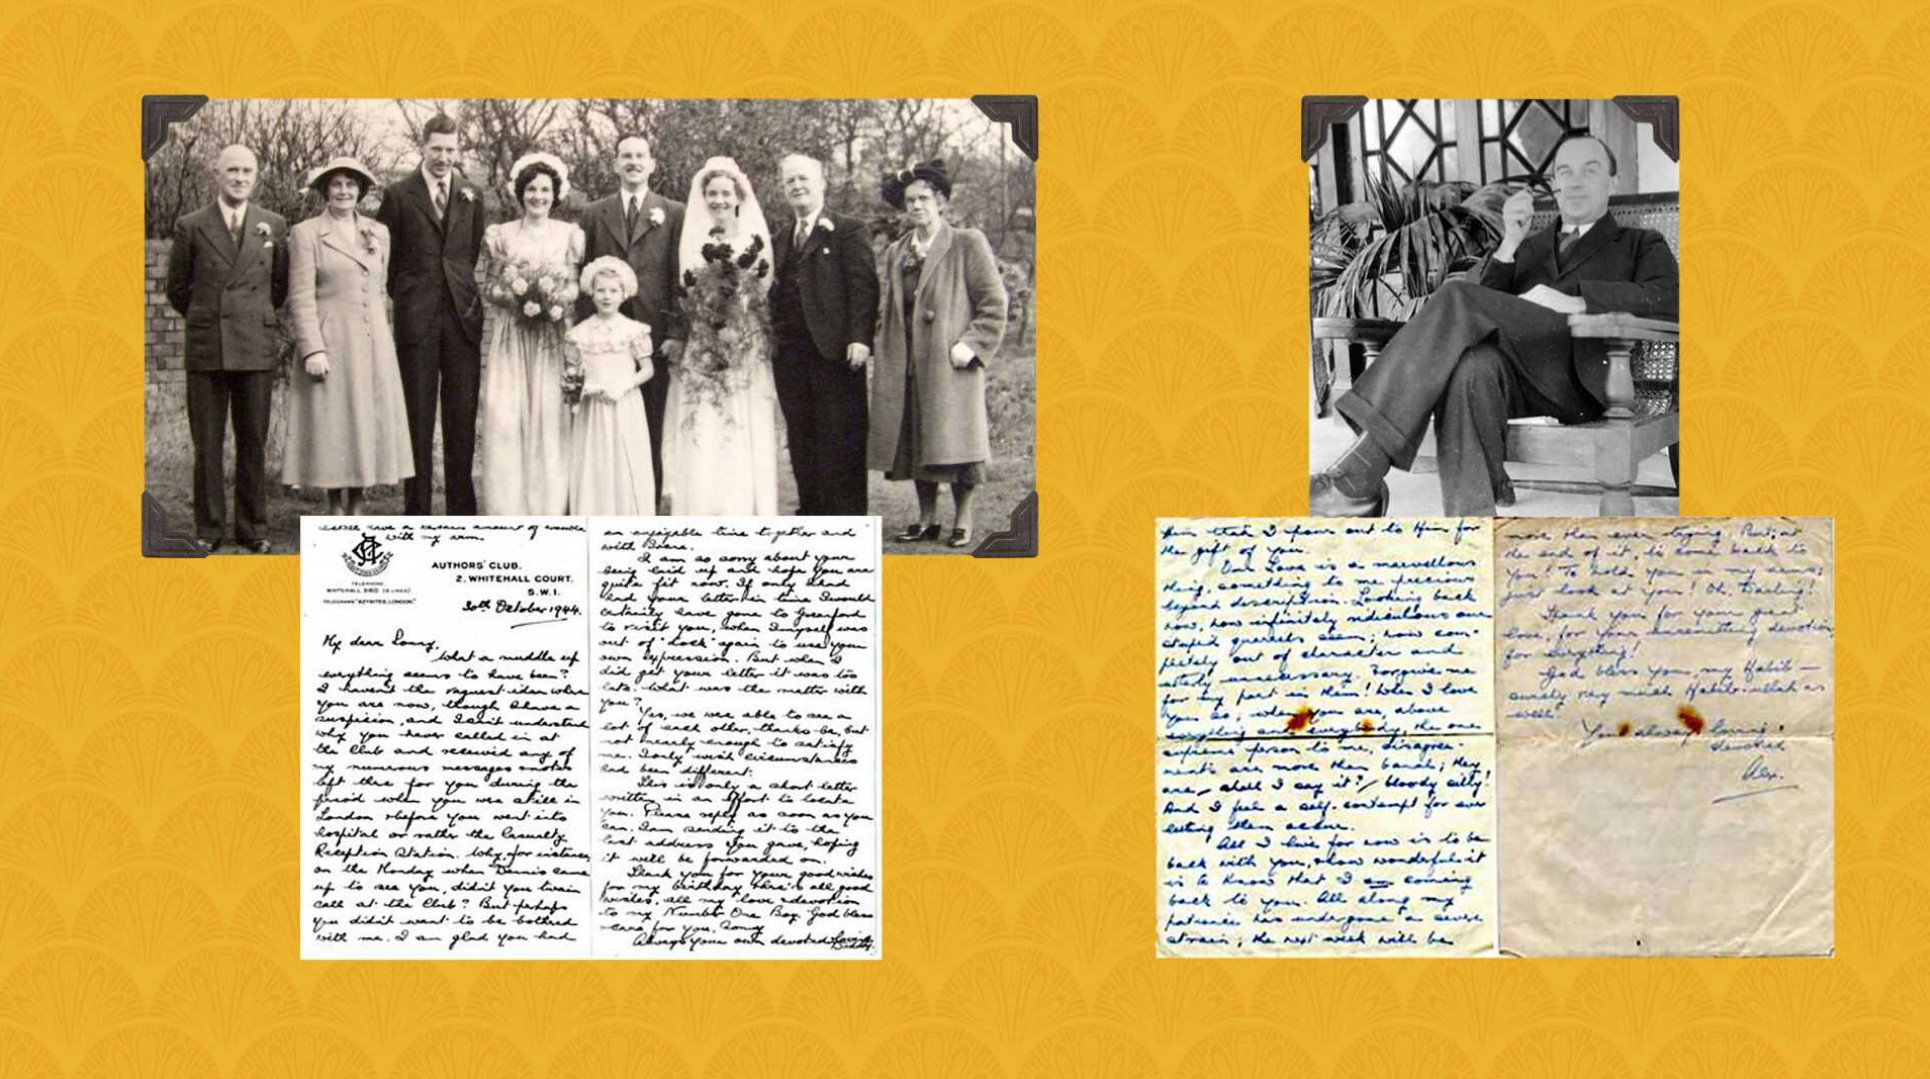 with my arm.
TELEPHONE
WHITEHALL
TELEGRAMS
LONDON
AUTHORS' CLUB.
2, WHITEHALL COURT,
S.W.1.
30th October 1944.
My dear Sonny,
What a muddle up
everything seems to have been?
I haven't the vaguest idea where
you are now, though I have a
suspicion, and I can't understand
why you never called in at
the Club and received any of
my numerous messages & notes
left there for you during the
period when you were still in
London & before you went into
hospital or rather the Casualty
Reception Station. Why, for instance
on the Monday when Dennis came
up to see you, didn't you twain
call at the Club? But perhaps
you didn't want to be bothered
with me. I am glad you had
an enjoyable time together and
with
I am so sorry about your
being laid up and hope you are
quite fit now. If only I had
had your letter in time I would
certainly have gone to Greenford
to visit you, when I myself was
out of "dock" again to use your
own expression. But when I
did get your letter it was too
late. What was the matter with
you?
Yes, we were able to see a
lot of each other, thanks be, but
not nearly enough to satisfy
me. I only wish circumstances
had been different.
This is only a short letter
written in an effort to locate
you. Please reply as soon as you
can. I am sending it to the
last address you gave, hoping
it will be forwarded on.
Thank you for your good wishes
for my birthday. Here's all good
wishes, all my love & devotion
to my Number One Boy. God bless
& care for you, Sonny
Always your own devoted loving
Him that I pour out to Him for
the gift of you.
Our Love is a marvellous
thing, something to me precious
beyond description. Looking back
now, how infinitely ridiculous our
stupid quarrels seem; how com-
pletely out of character and
utterly unnecessary. Forgive me
for my part in them! When I love
you so; when you are, above
everything and everybody, the one
supreme person to me, disagree-
ments are more than banal; they
are, shall I say it? bloody silly!
And I feel a self-contempt for ever
letting them occur.
All I live for now is to be
back with you, & how wonderful it
is to know that I am coming
back to you. All along my
patience has undergone a severe
strain; the next week will be
more than ever trying. But, at
the end of it, to come back to
you! To hold you in my arms;
just look at you! Oh, Darling!
Thank you for your great
love, for your unremitting devotion,
for everything!
God bless you, my Habib —
as
well!
Your always loving &
devoted
Alex.